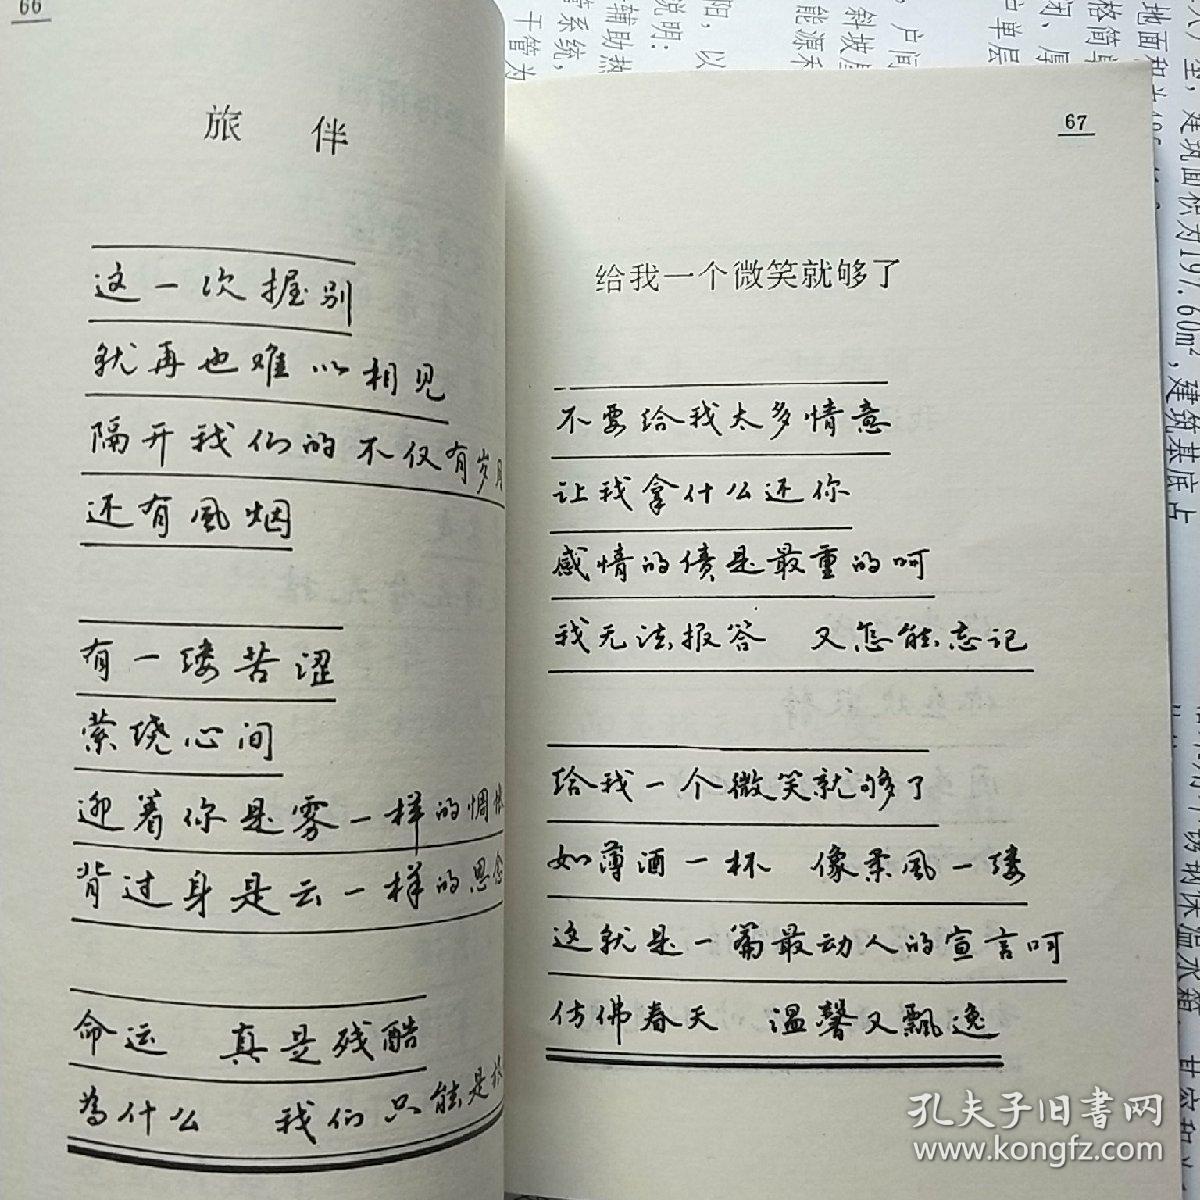 66
旅 伴
这一次握别
就再也难以相见
隔开我们的不仅有岁月
还有風烟
有一缕苦涩
萦绕心间
迎着你是雾一样的惆
背过身是云一样的思念
命运 真是残酷
為什么 我们只能是
67
给我一个微笑就够了
不要给我太多情意
让我拿什么还你
感情的债是最重的呵
我无法报答 又怎能忘记
给我一个微笑就够了
如薄酒一杯 像柔風一缕
这就是一篇最动人的宣言呵
仿佛春天 温馨又飘逸
孔夫子旧书网
www.kongfz.com
建筑面积为197.60m²,建筑基底占